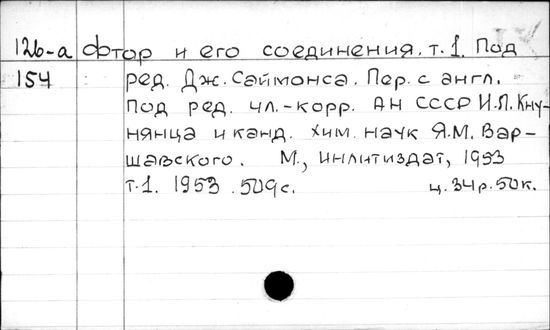 126-а Фтор и его соединения. т.1. Под
154 ред. Дж. Саймонса. Пер. с англ.
Под ред. чл.-корр. АН СССР И.Л. Кну-
нянца и канд. хим. наук Я.М. Вар-
шавского. М., Инлитиздат, 1953
т.1. 1953. 509с. ц. 34р.50к.